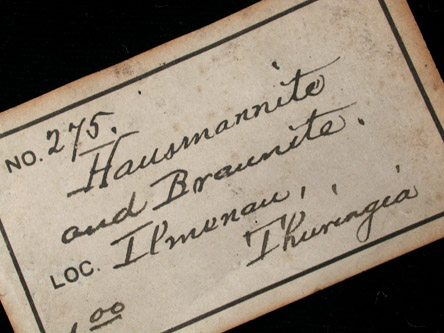 NO. 275.
Hausmannite
and Braunite.
LOC. Ilmenau,
Thuringia
1.00